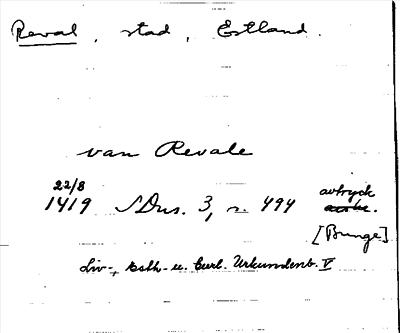 Reval, stad, Estland.
van Revale
22/8
1419 SDns. 3, n. 494 avtryck
[Bunge]
Liv-, Esth- u. Curl. Urkundenb. V